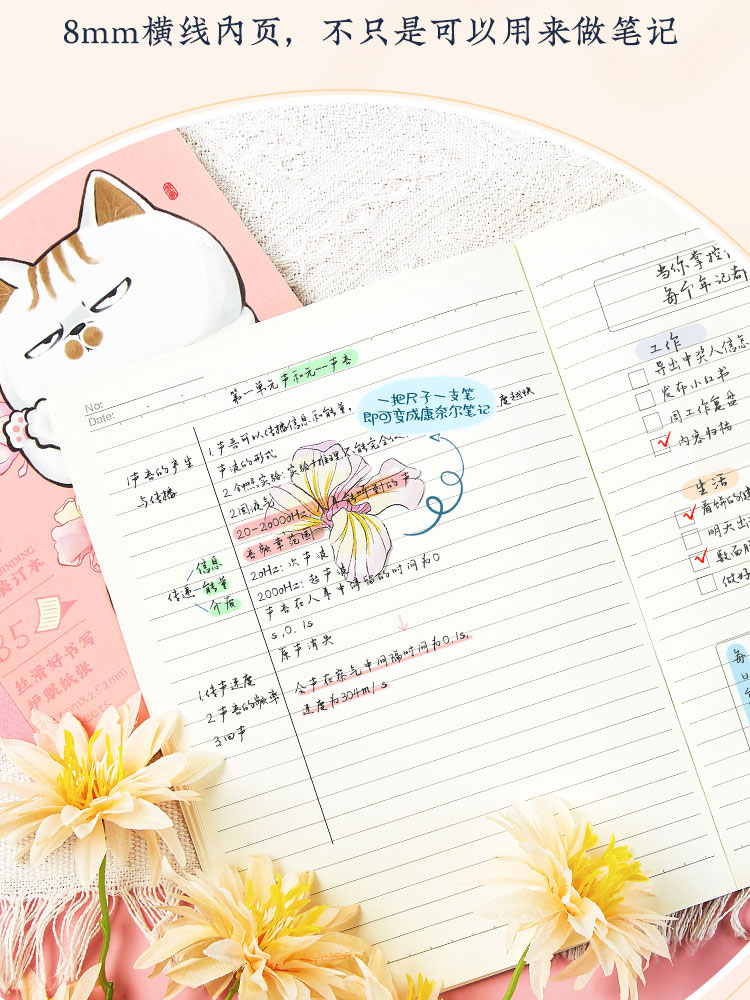 8mm横线内页，不只是可以用来做笔记
No:
Date:
第一单元 声和元--声音
一把尺子一支笔
即可变成康奈尔笔记
度越快
1声音的产生
与传播
1.声音可以传播信息和能量,
声波的形式
2.
2.固液气
20-20000Hz:
音频率范围
20Hz: 次声波
2000Hz: 超声波
声音在人耳中停留的时间为0
s,0.1s
原声消失
信息
传递 能量
介质
1.传声速度
2.声音的频率
3.回声
全声在空气中间隔时间为0.1s,
速度为304m/s
当你掌控
每个年记者
工作
导出中奖人信息
发布小红书
周工作复盘
内容归档
生活
看娇的
明天出
数面膜
做好
每
BINDING
装订本
B5
丝滑好书写
护眼纸张